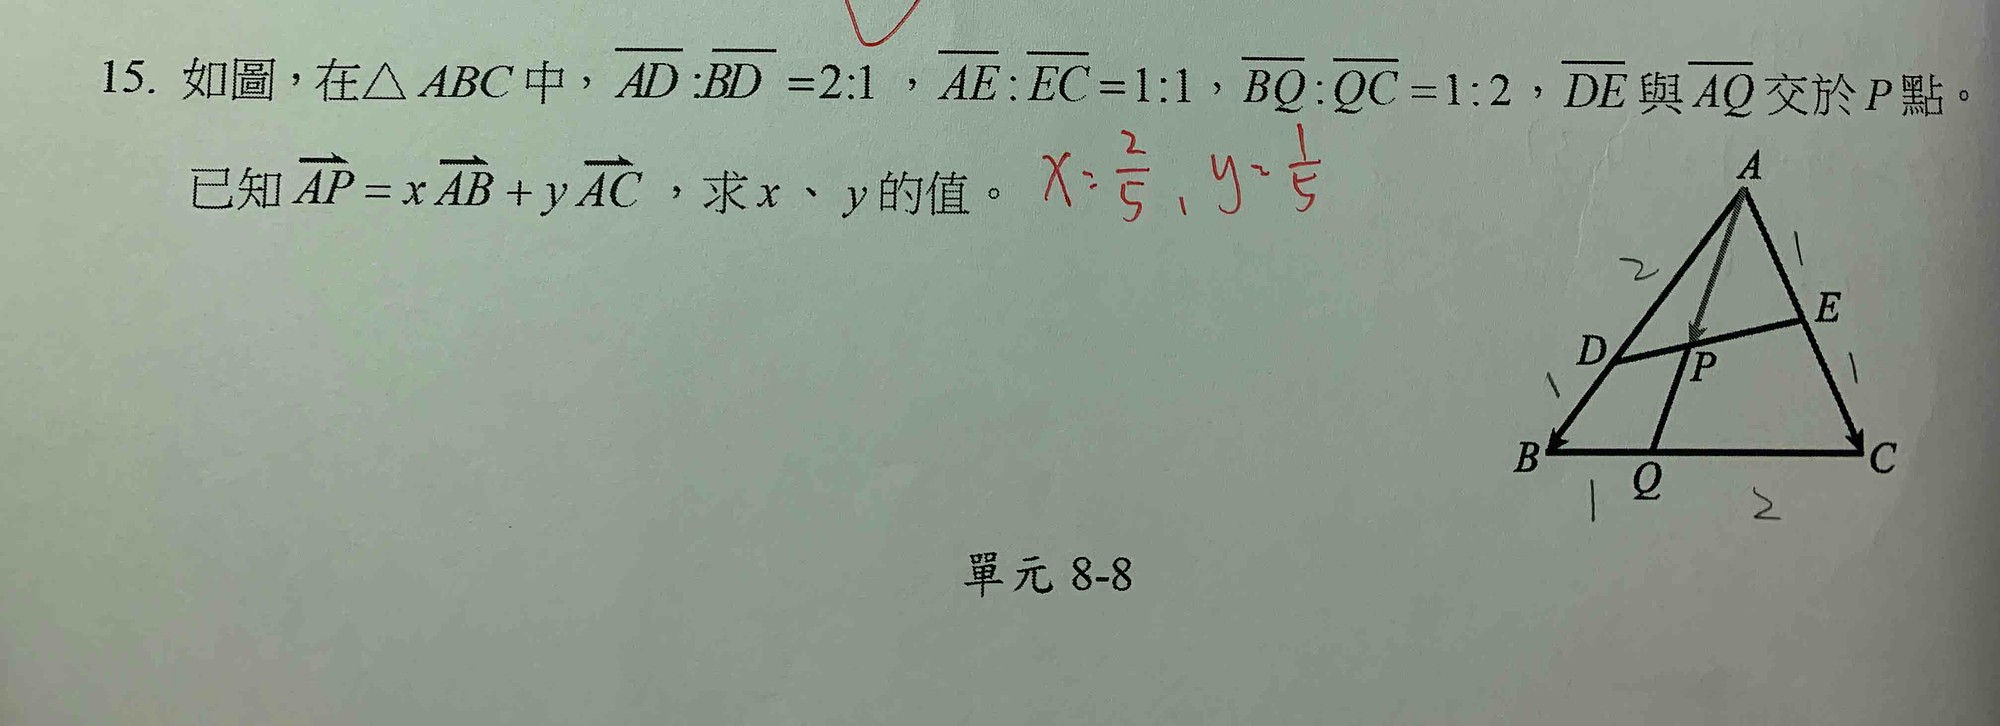 15. 如圖，在△ABC中，AD:BD=2:1，AE:EC=1:1，BQ:QC=1:2，DE與AQ交於P點。
已知AP=xAB+yAC，求x、y的值。 x=2/5、y=1/5
A
2
1
E
D
P
1
1
B
Q
C
1
2
單元 8-8